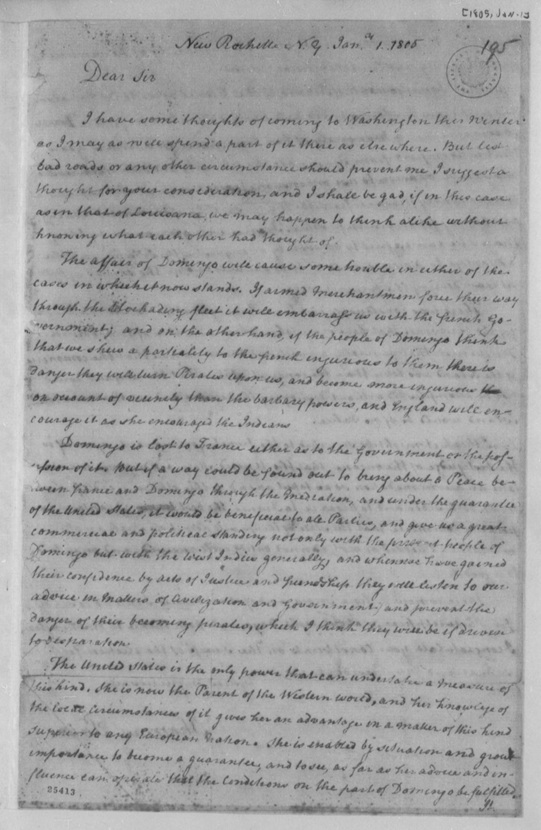 [1805, Jan-1]
New Rochelle N. Y. Jan.y 1. 1805
195
Dear Sir
I have some thoughts of coming to Washington this Winter
as I may as well spend a part of it there as elsewhere. But lest
bad roads or any other circumstance should prevent me I suggest a
thought for your consideration, and I shall be glad if in this case
as in that of Louisiana, we may happen to think alike without
knowing what each other had thought of.
The affair of Domingo will cause some trouble in either of the
cases in which it now stands. If armed merchantmen force their way
through the blockading fleet it will embarrass us with the french Go-
vernment; and on the other hand, if the people of Domingo think
that we shew a partiality to the french injurious to them there is
danger they will turn Pirates upon us, and become more injurious
on account of vicinity than the barbary powers, and England will en-
courage it as she encouraged the Indians
Domingo is lost to France either as to the Government or the pos-
session of it. But if a way could be found out to bring about a Peace be-
tween france and Domingo through the mediation, and under the guarantee
of the United States, it would be beneficial to all Parties, and give us a great
commercial and political standing not only with the present people of
Domingo but with the West Indies generally; and when we have gained
their confidence by acts of Justice and friendship they will listen to our
advice in matters of Civilization and Government, and prevent the
danger of their becoming pirates, which I think they will be if driven
to desparation.
The United States is the only power that can undertake a measure of
this kind. She is now the Parent of the Western world, and her knowledge of
the local circumstances of it gives her an advantage in a matter of this kind
superior to any European Nation. She is enabled by situation and grow
importance to become a guarantee, and to see, as far as her advice and in-
fluence can operate that the Conditions on the part of Domingo be fulfilled.
25413